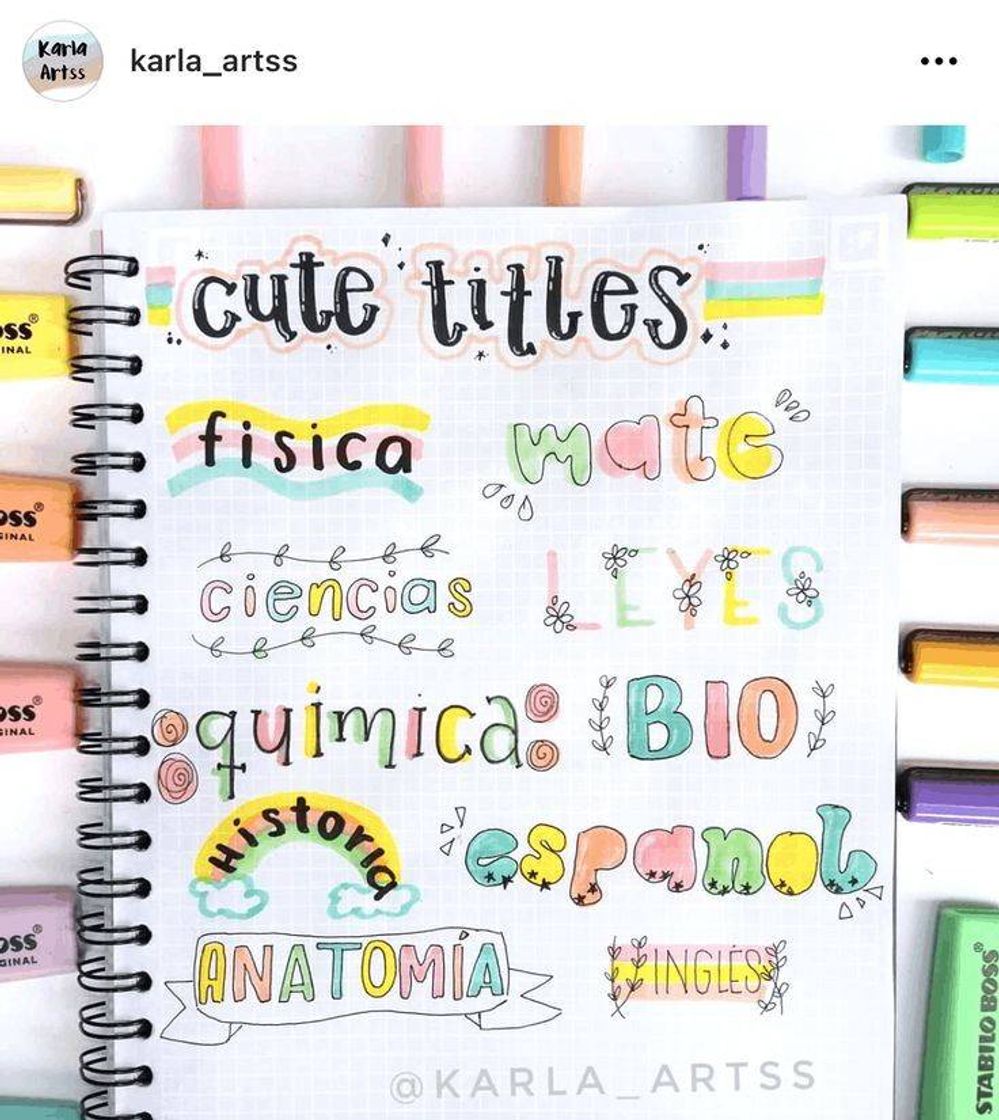 Karla
Artss
karla_artss
cute titles
fisica
mate
ciencias
LEYES
química
BIO
Historia
espanol
ANATOMÍA
INGLÉS
@KARLA_ARTSS
OSS®
INAL
OSS®
GINAL
OSS®
GINAL
OSS®
GINAL
STABILO BOSS®